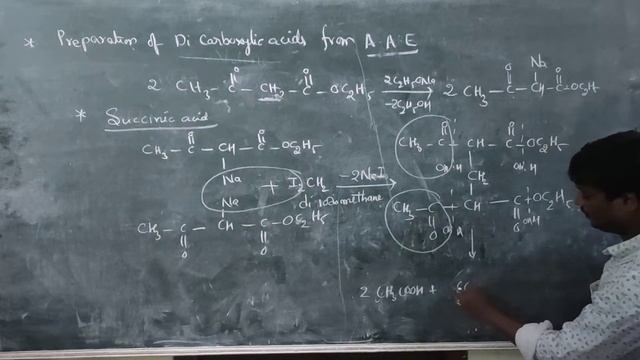 * Preparation of Di Carboxylic acids from A.A.E
2 CH3 - C - CH2 - C - OC2H5 2C2H5ONa -2C2H5OH 2 CH3 - C - CH - C - OC2H5
O O O Na O
* Succinic acid
CH3 - C - CH - C - OC2H5
O O
Na
Na
+ I2CH2 -2NaI
di iodomethane
CH3 - C - CH - C - OC2H5
O O
CH3 - C - CH - C - OC2H5
O O
CH2
CH3 - C - CH - C - OC2H5
O O
2 CH3COOH +